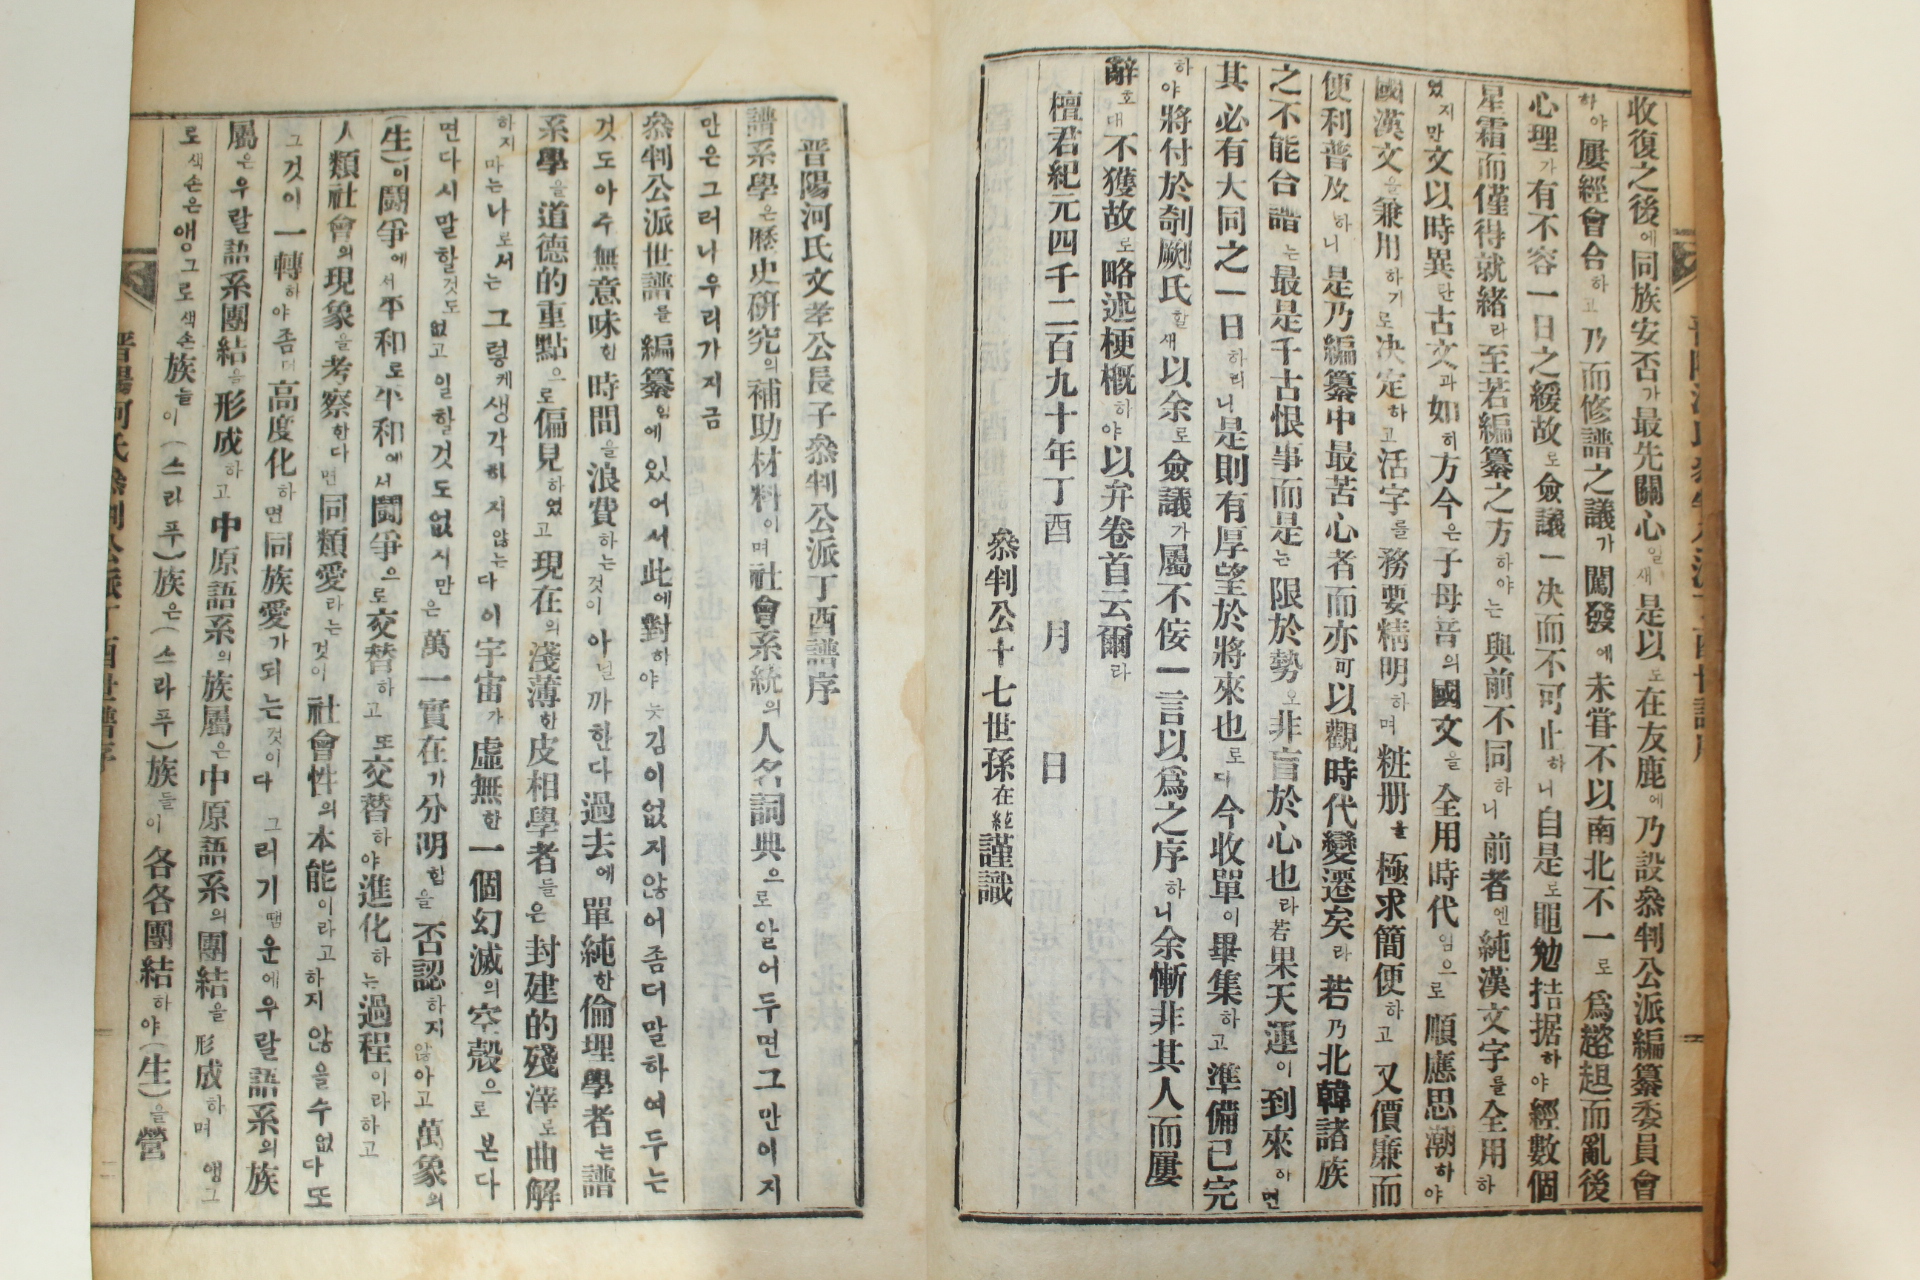 收復之後에同族安否가最先關心일새是以로在友鹿에乃設叅判公派編纂委員會
하야屢經會合하고乃而修譜之議가闖發에未嘗不以南北不一로爲趑趄而亂後
心理가有不容一日之緩故로僉議一决而不可止하니自是로黽勉拮据하야經數個
星霜而僅得就緖라至若編纂之方하야는與前不同하니前者엔純漢文字를全用하
였지만文以時異란古文과如히方今은子母音의國文을全用時代임으로順應思潮하야
國漢文을兼用하기로决定하고活字를務要精明하며粧册을極求簡便하고又價廉而
便利普及하니是乃編纂中最苦心者而亦可以觀時代變遷矣라若乃北韓諸族
之不能合譜는最是千古恨事而是는限於勢오非盲於心也라若果天運이到來하면
其必有大同之一日하리니是則有厚望於將來也로다今收單이畢集하고準備已完
하야將付於剞劂氏할새以余로僉議가屬不侫一言以爲之序하니余慚非其人而屢
辭호대不獲故로略述梗槪하야以弁卷首云爾라
檀君紀元四千二百九十年丁酉 月 日
叅判公十七世孫在 謹識
晋陽河氏文孝公長子叅判公派丁酉譜序
譜系學은歷史硏究의補助材料이며社會系統의人名詞典으로알어두면그만이지
만은그러나우리가지금
叅判公派世譜를編纂임에있어서此에對하야늣김이없지않어좀더말하여두는
것도아주無意味한時間을浪費하는것이아닐까한다過去에單純한倫理學者는譜
系學을道德的重點으로偏見하였고現在의淺薄한皮相學者들은封建的殘滓로曲解
하지마는나로서는그렇게생각하지않는다이宇宙가虛無한一個幻滅의空殼으로본다
면다시말할것도없고일할것도없시만은萬一實在가分明힘을否認하지않아고萬象의
(生)이鬪爭에서平和로平和에서鬪爭으로交替하고또交替하야進化하는過程이라하고
人類社會의現象을考察한다면同類愛라는것이社會性의本能이라고하지않을수없다또
그것이一轉하야좀더高度化하면同族愛가되는것이다그러기땜운에우랄語系의族
屬은우랄語系團結을形成하고中原語系의族屬은中原語系의團結을形成하며앵그
로색손은앵그로색손族들이(스라푸)族은(스라푸)族들이各各團結하야(生)을營